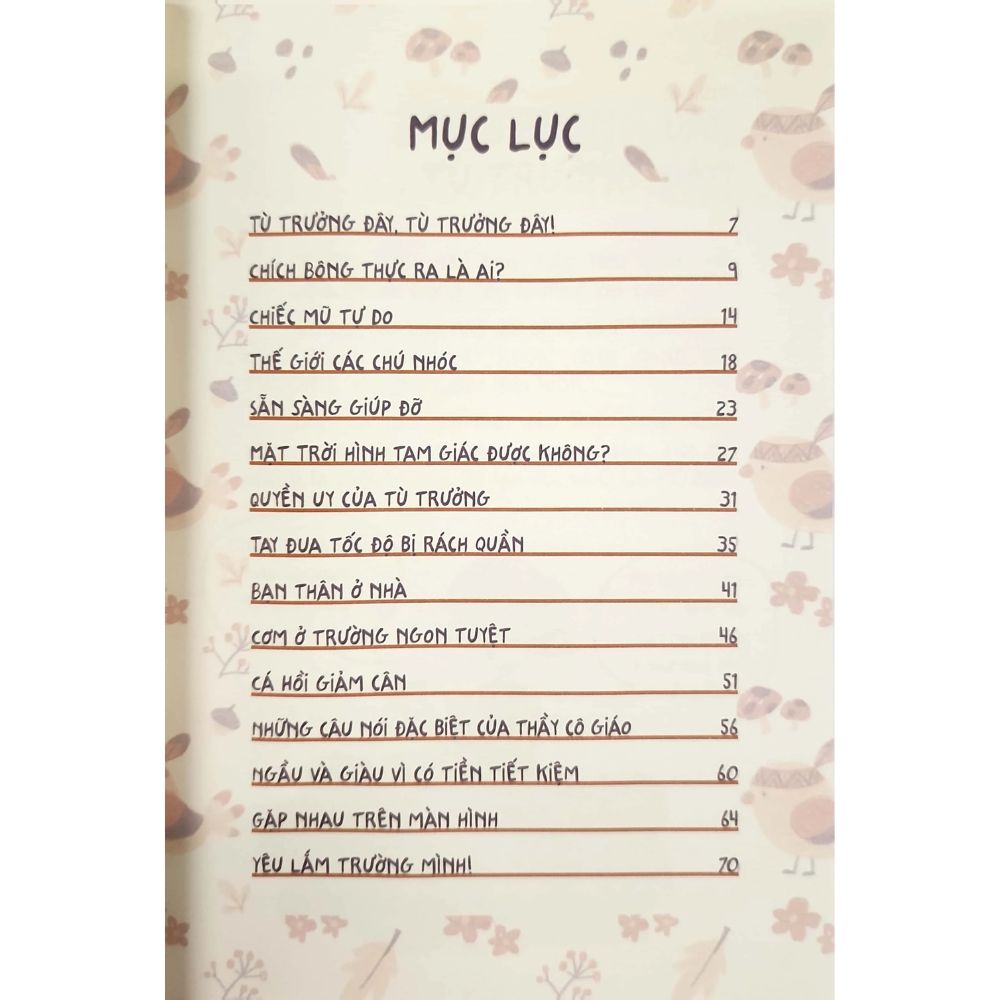 MỤC LỤC
TÙ TRƯỞNG ĐÂY, TÙ TRƯỞNG ĐÂY! 7
CHÍCH BÔNG THỰC RA LÀ Ai? 9
CHiẾC MŨ TỰ DO 14
THẾ GiỚi CÁC CHÚ NHÓC 18
SẴN SÀNG GiÚP ĐỠ 23
MẶT TRỜi HÌNH TAM GiÁC ĐƯỢC KHÔNG? 27
QUYỀN UY CỦA TÙ TRƯỞNG 31
TAY ĐUA TỐC ĐỘ BỊ RÁCH QUẦN 35
BẠN THÂN Ở NHÀ 41
CƠM Ở TRƯỜNG NGON TUYỆT 46
CÁ HỒi GiẢM CÂN 51
NHỮNG CÂU NÓi ĐẶC BiỆT CỦA THẦY CÔ GiÁO 56
NGẦU VÀ GiÀU VÌ CÓ TiỀN TiẾT KiỆM 60
GẶP NHAU TRÊN MÀN HÌNH 64
YÊU LẮM TRƯỜNG MÌNH! 70